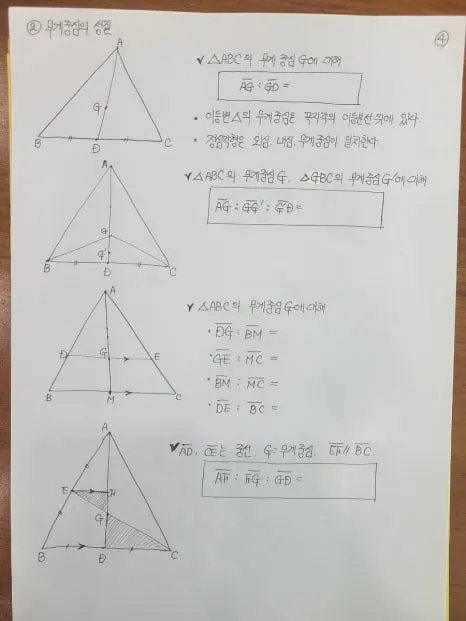 ② 무게중심의 성질
④
A
G
B
D
C
✓ △ABC의 무게중심 G에 대해
AG : GD =
• 이등변△의 무게중심은 꼭지각의 이등분선 위에 있다.
• 정삼각형은 외심, 내심, 무게중심이 일치한다.
A
G
G'
B
D
C
✓ △ABC의 무게중심 G, △GBC의 무게중심 G'에 대해
AG : GG' : G'D =
A
D
G
E
B
M
C
✓ △ABC의 무게중심 G에 대해
• DG : BM =
• GE : MC =
• BM : MC =
• DE : BC =
A
E
F
G
B
D
C
✓ AD, CE는 중선, G=무게중심, EF // BC.
AF : FG : GD =